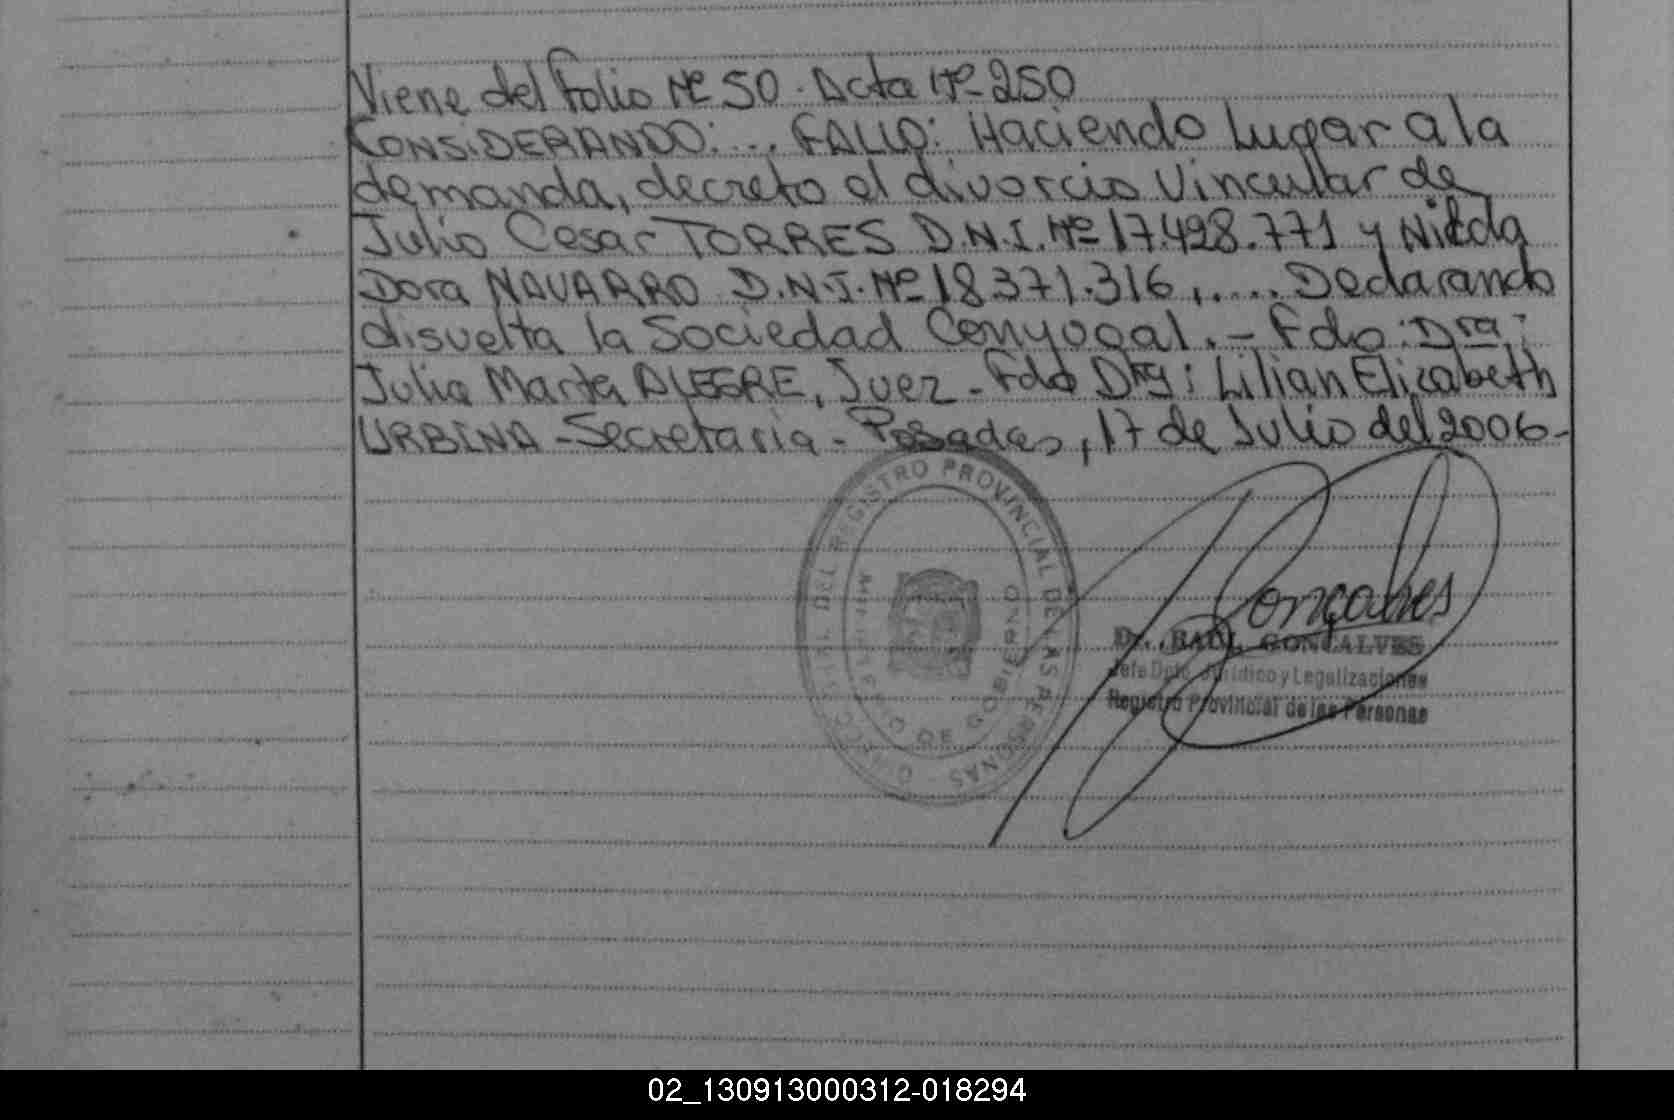 Viene del folio Nº 50. Acta Nº 250
CONSIDERANDO: ... FALLO: Haciendo Lugar a la
demanda, decreto el divorcio Vincular de
Julio Cesar TORRES D.N.I. Nº 17.428.771 y Nilda
Dora NAVARRO D.N.I. Nº 18.371.316, .... Declarando
disuelta la Sociedad Conyugal. - Fdo: Dra:
Julia Marta ALEGRE, Juez - Fdo Dra: Lilian Elizabeth
URBINA - Secretaria - Posadas, 17 de Julio del 2006 -
DEL REGISTRO PROVINCIAL DE LAS PERSONAS
DE GOBIERNO
Gonçalves
Dr. RAUL GONCALVES
Jefe Dpto. Jurídico y Legalizaciones
Registro Provincial de las Personas
02_130913000312-018294